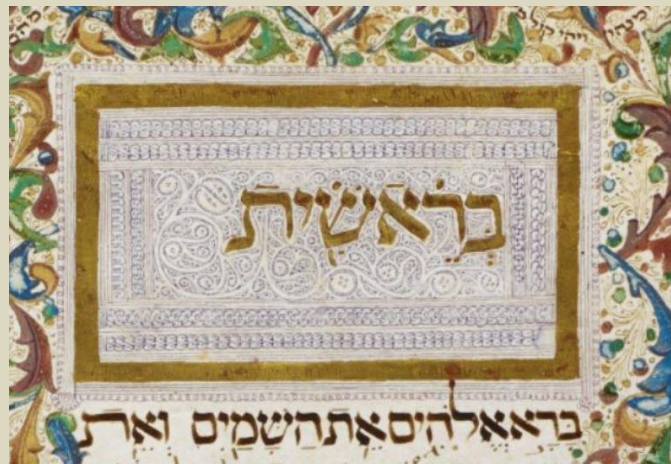 בְּרֵאשִׁית
בָּרָא אֱלֹהִים אֵת הַשָּׁמַיִם וְאֵת